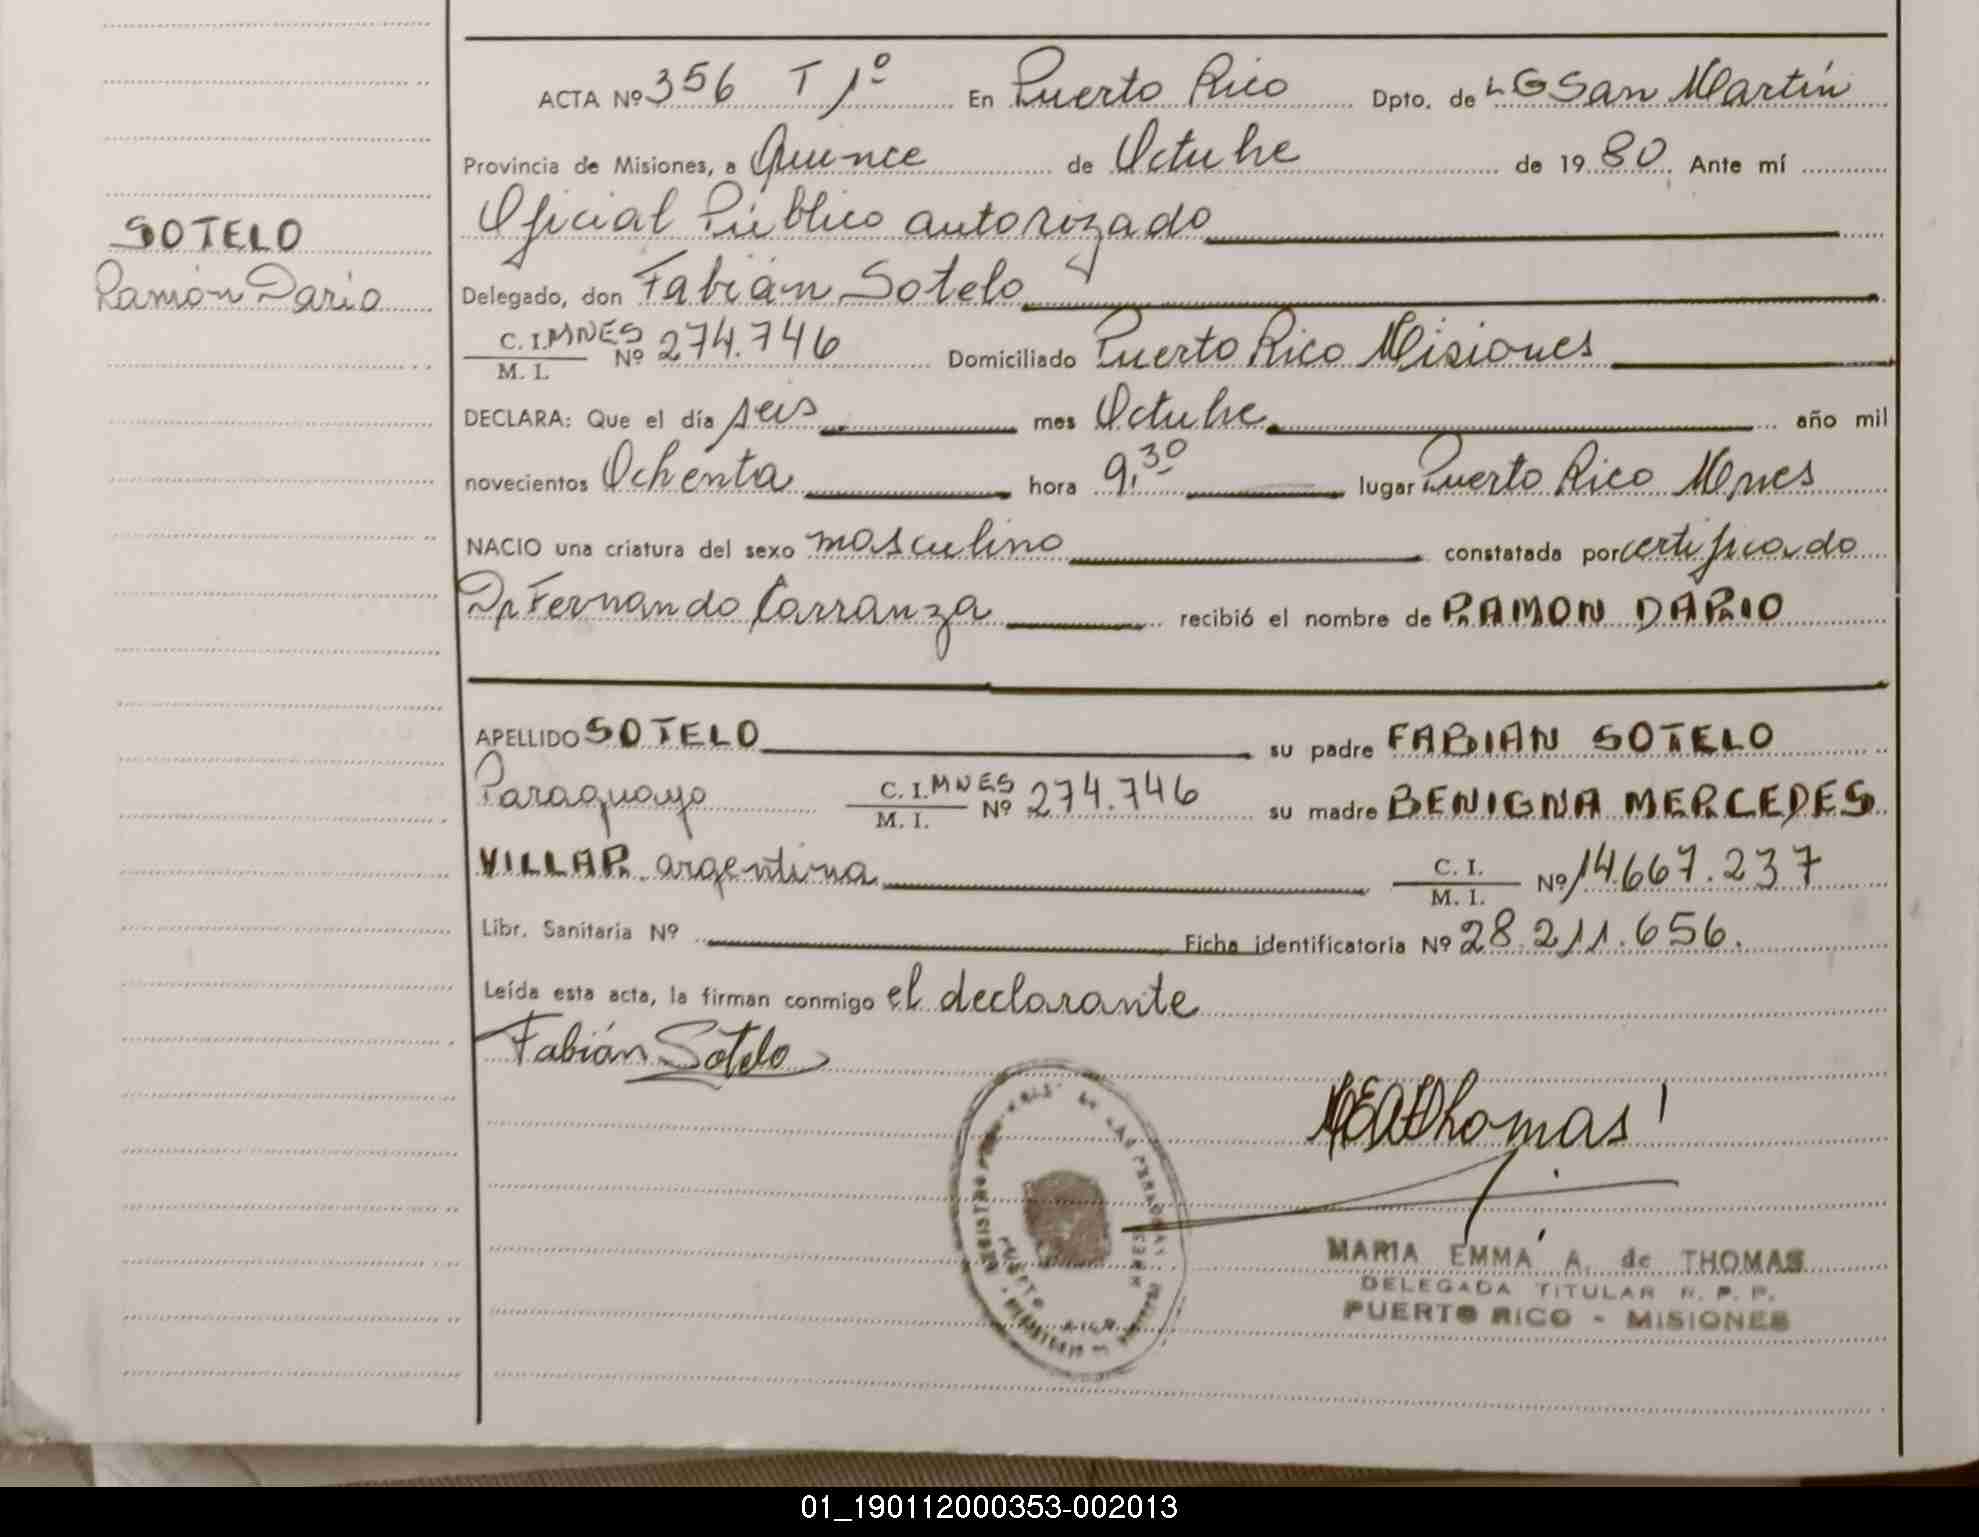 ACTA Nº 356 T 1º En Puerto Rico Dpto. de LG San Martín
Provincia de Misiones, a Quince de Octubre de 1980. Ante mí
Oficial Público autorizado
SOTELO
Ramón Darío
Delegado, don Fabián Sotelo
C. I. MNES
M. I. Nº 274.746 Domiciliado Puerto Rico Misiones
DECLARA: Que el día seis mes Octubre año mil
novecientos Ochenta hora 9,30 lugar Puerto Rico Mnes
NACIO una criatura del sexo masculino constatada por certificado
Dr Fernando Carranza recibió el nombre de RAMON DARIO
APELLIDO SOTELO su padre FABIAN SOTELO
Paraguayo C. I. MNES
M. I. Nº 274.746 su madre BENIGNA MERCEDES
VILLAR argentina C. I.
M. I. Nº 14.667.237
Libr. Sanitaria Nº Ficha identificatoria Nº 28.211.656.
Leída esta acta, la firman conmigo el declarante
Fabián Sotelo
Thomas
REGISTRO DE LAS PERSONAS
PUERTO RICO
MARIA EMMA A. de THOMAS
DELEGADA TITULAR R. P. P.
PUERTO RICO - MISIONES
01_190112000353-002013